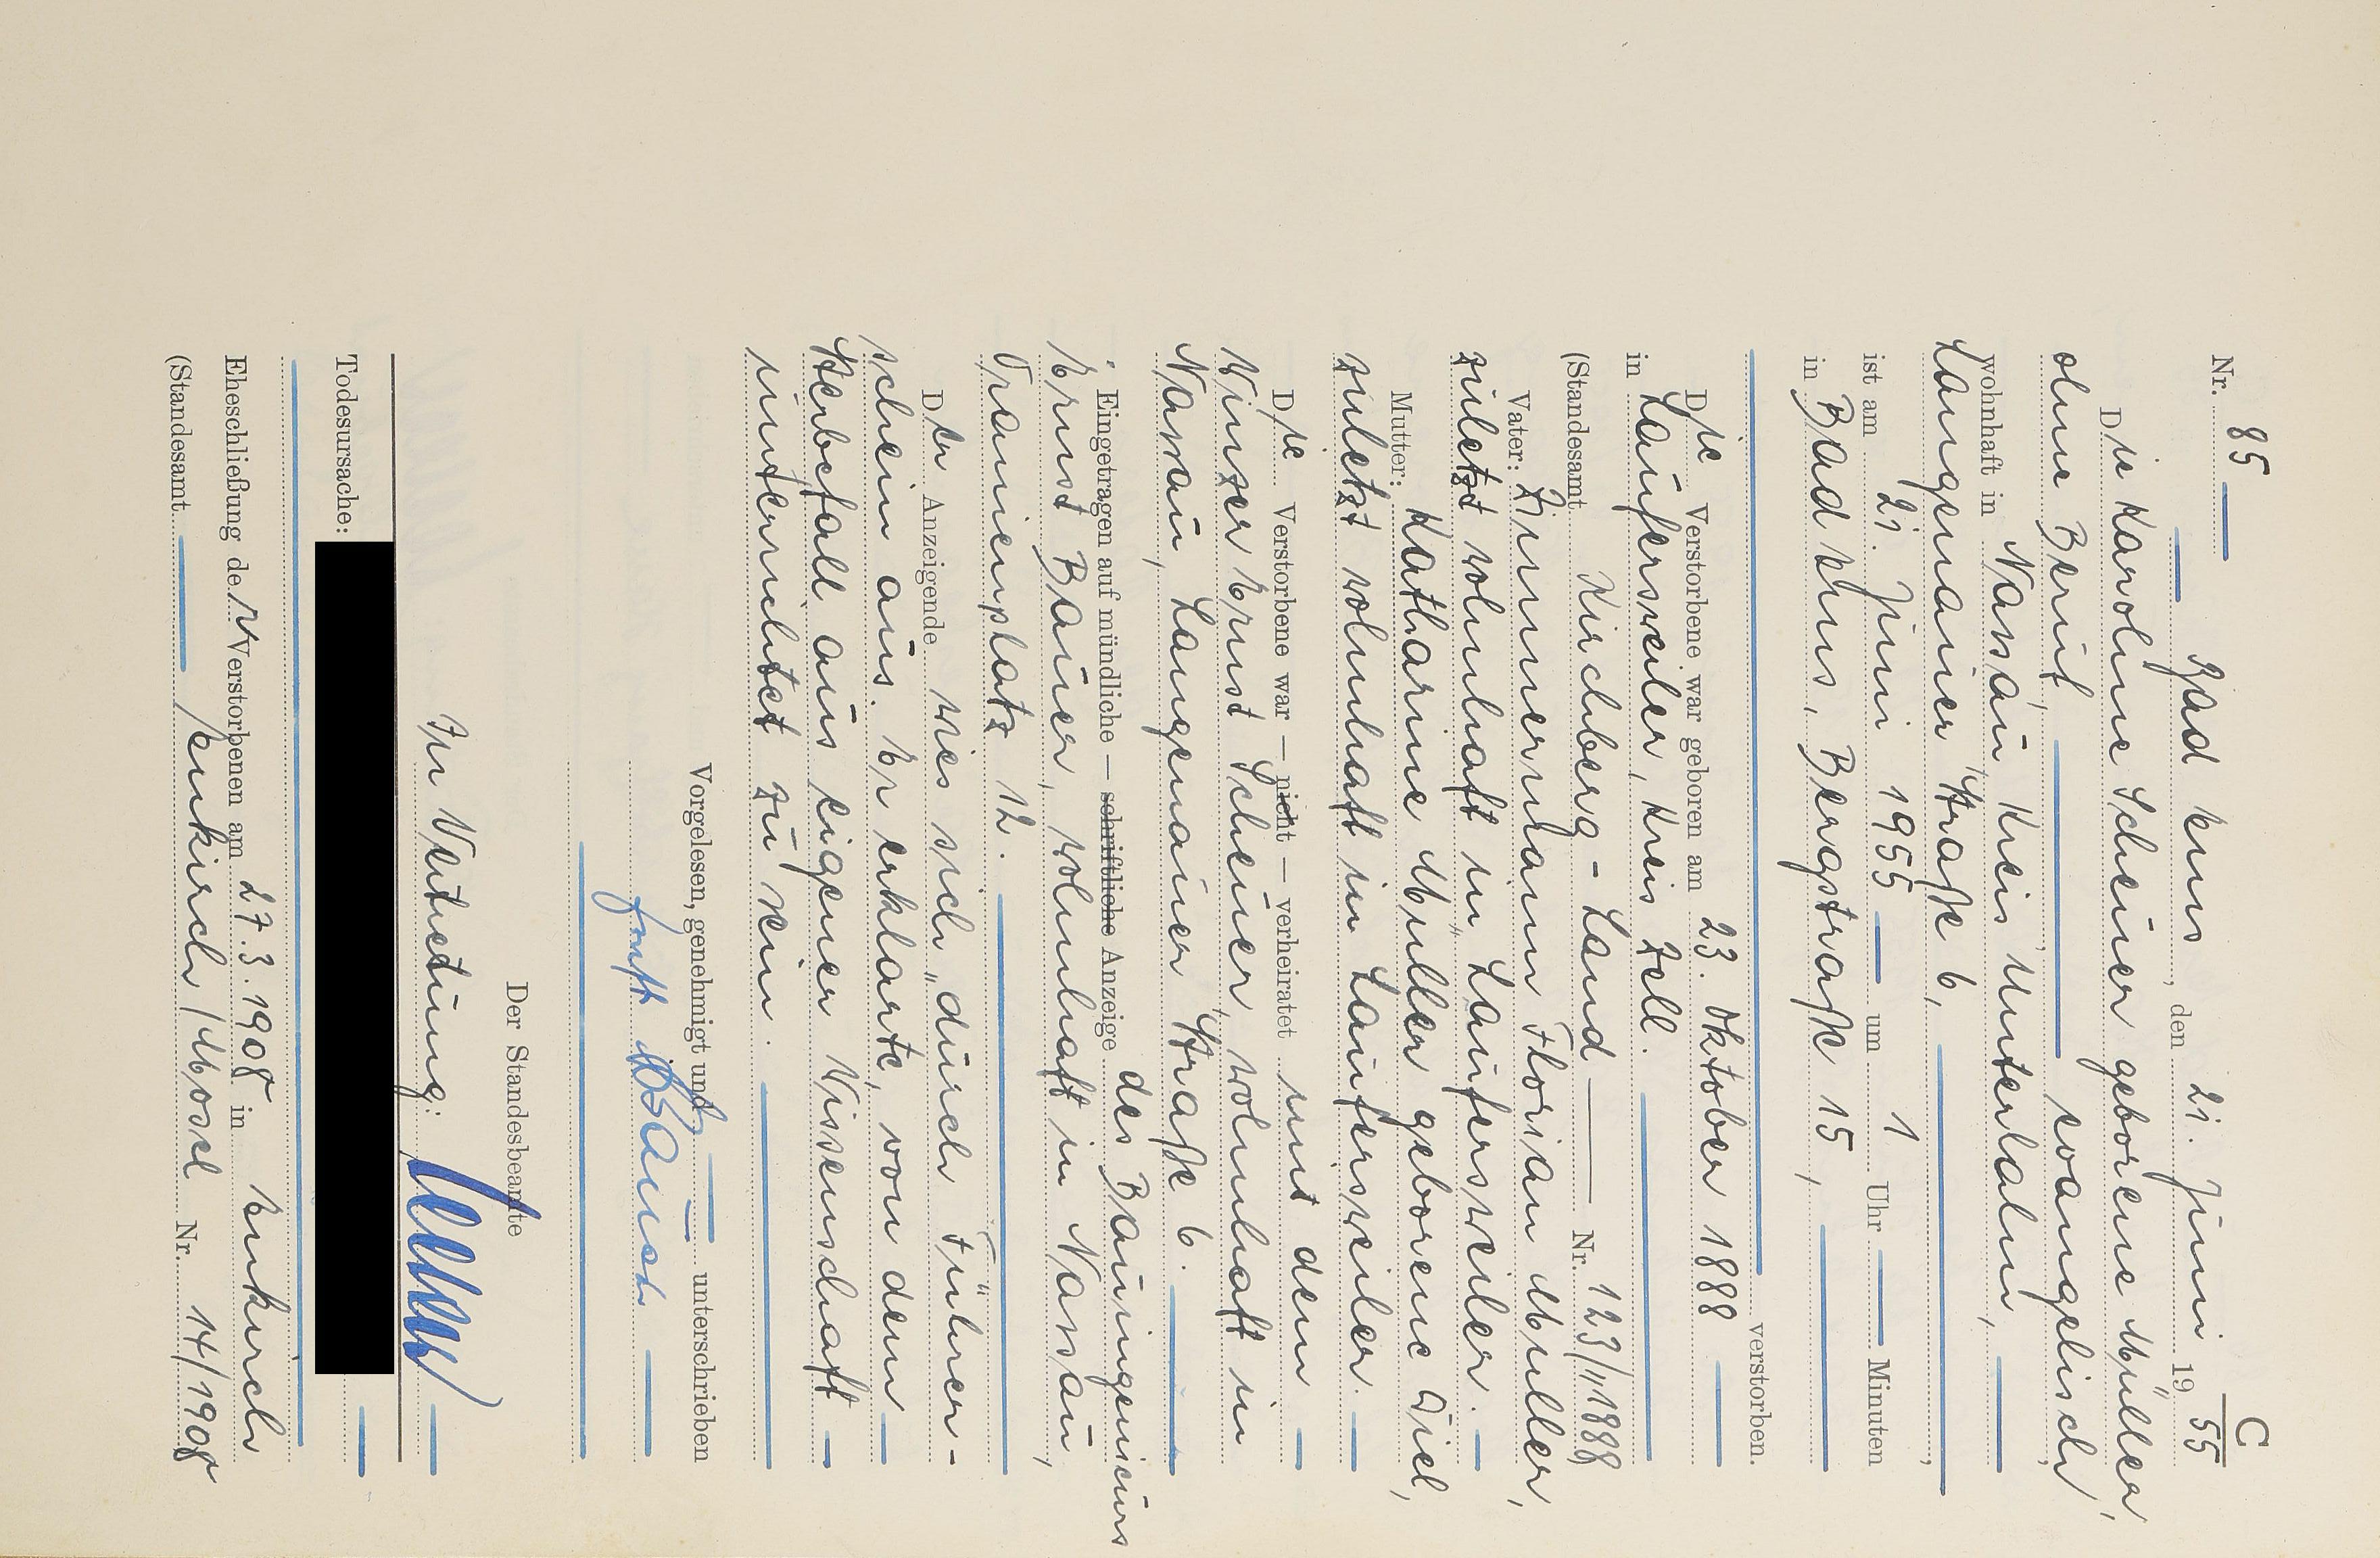 C
Nr. 85
Bad Ems, den 21. Juni 19 55
Die Karoline Scheuer geborene Müller,
ohne Beruf, evangelisch,
wohnhaft in Nassau, Kreis Unterlahn,
Langenauer Straße 6,
ist am 21. Juni 1955 um 1 Uhr Minuten
in Bad Ems, Bergstraße 15,
verstorben.
Die Verstorbene war geboren am 23. Oktober 1888
in Laufersweiler, Kreis Zell.
(Standesamt Kirchberg-Land Nr. 123/1888)
Vater: Zimmermann Florian Müller,
zuletzt wohnhaft in Laufersweiler.
Mutter: Katharine Müller geborene Diel,
zuletzt wohnhaft in Laufersweiler.
Die Verstorbene war — nicht — verheiratet mit dem
Winzer Ernst Scheuer, wohnhaft in
Nassau, Langenauer Straße 6.
Eingetragen auf mündliche — schriftliche Anzeige des Bauingenieurs
Ernst Bauer, wohnhaft in Nassau,
Oranienplatz 12.
Der Anzeigende wies sich durch Führer-
schein aus. Er erklärte, von dem
Sterbefall aus eigener Wissenschaft
unterrichtet zu sein.
Vorgelesen, genehmigt und unterschrieben
Ernst Bauer
Der Standesbeamte
In Vertretung:
Todesursache:
Eheschließung der Verstorbenen am 27.3.1908 in Enkirch
(Standesamt Enkirch/Mosel Nr. 14/1908